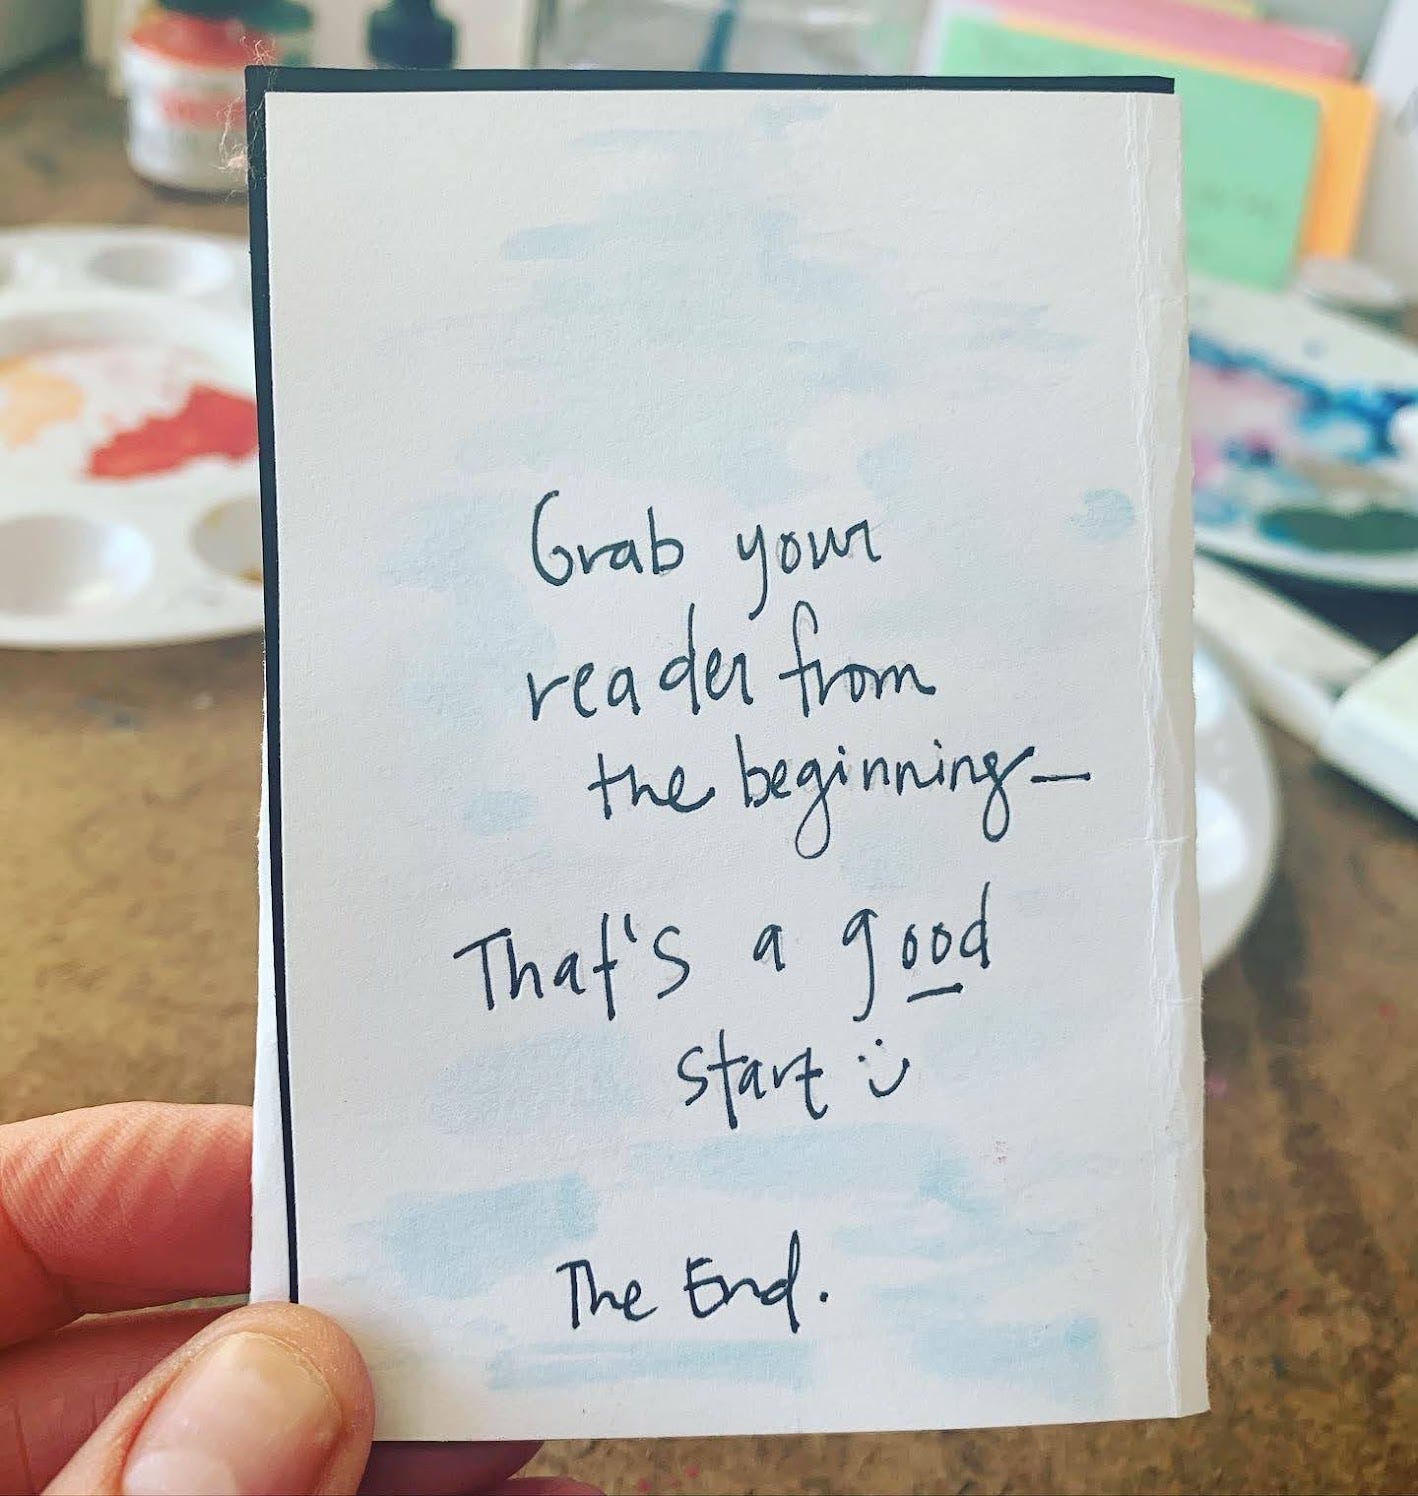 Grab your
reader from
the beginning—
That's a good
start :)
The End.